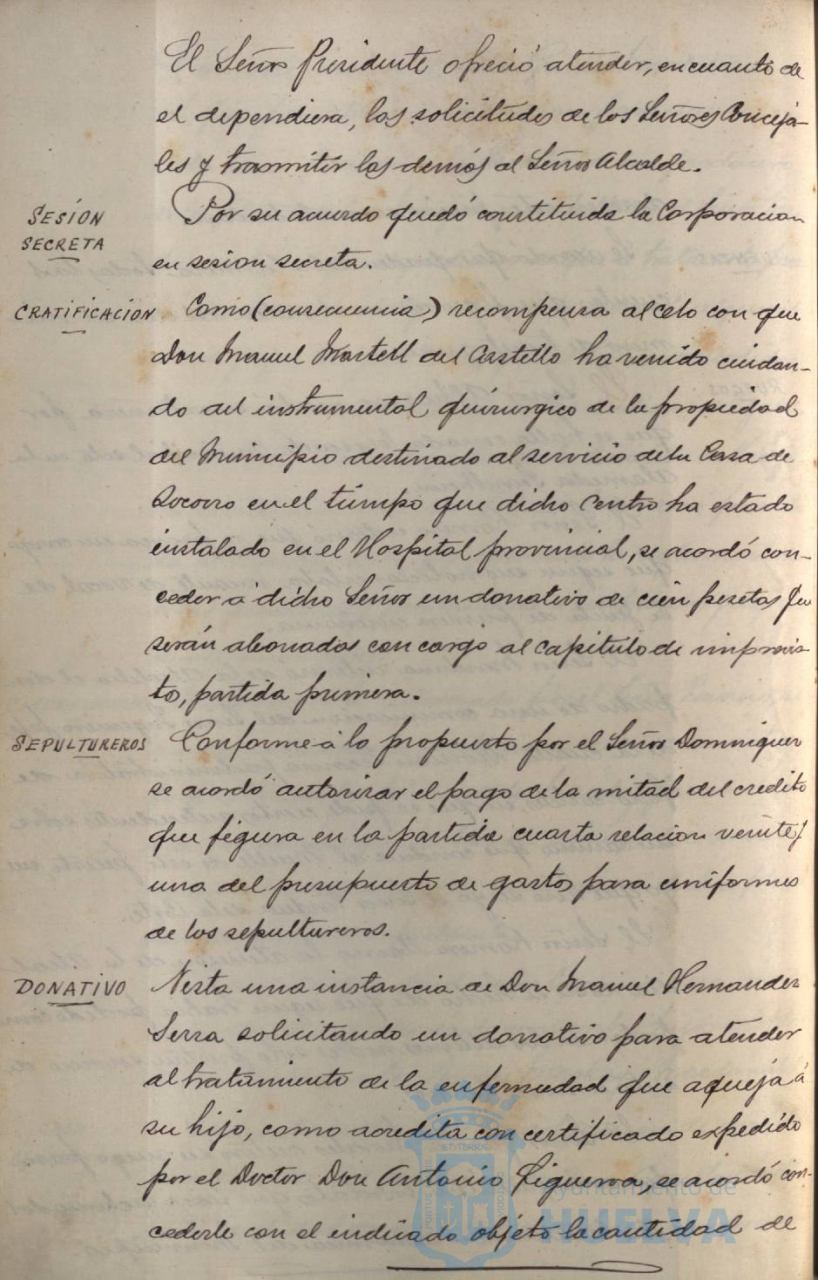 El Señor Presidente ofreció atender, en cuanto de
el dependiera, las solicitudes de los Señores Conceja-
les y trasmitir las demás al Señor Alcalde.
SESIÓN
SECRETA
Por su acuerdo quedó constituida la Corporacion
en sesion secreta.
CRATIFICACIÓN
Como (consecuencia) recompensa al celo con que
Don Manuel Martell del Castillo ha venido cuidan-
do del instrumental quirurgico de la propiedad
del Municipio destinado al servicio de la Casa de
Socorro en el tiempo que dicho Centro ha estado
instalado en el Hospital provincial, se acordó con-
ceder á dicho Señor un donativo de cien pesetas que
serán abonadas con cargo al capitulo de imprevis-
to, partida primera.
SEPULTUREROS
Conforme á lo propuesto por el Señor Dominguez
se acordó autorizar el pago de la mitad del credito
que figura en la partida cuarta relacion veinte y
una del presupuesto de gastos para uniformes
de los sepultureros.
DONATIVO
Vista una instancia de Don Manuel Hernandez
Serra solicitando un donativo para atender
al tratamiento de la enfermedad que aqueja á
su hijo, como acredita con certificado expedido
por el Doctor Don Antonio Figueroa, se acordó con-
cederle con el indicado objeto la cantidad de
Ayuntamiento de
HUELVA